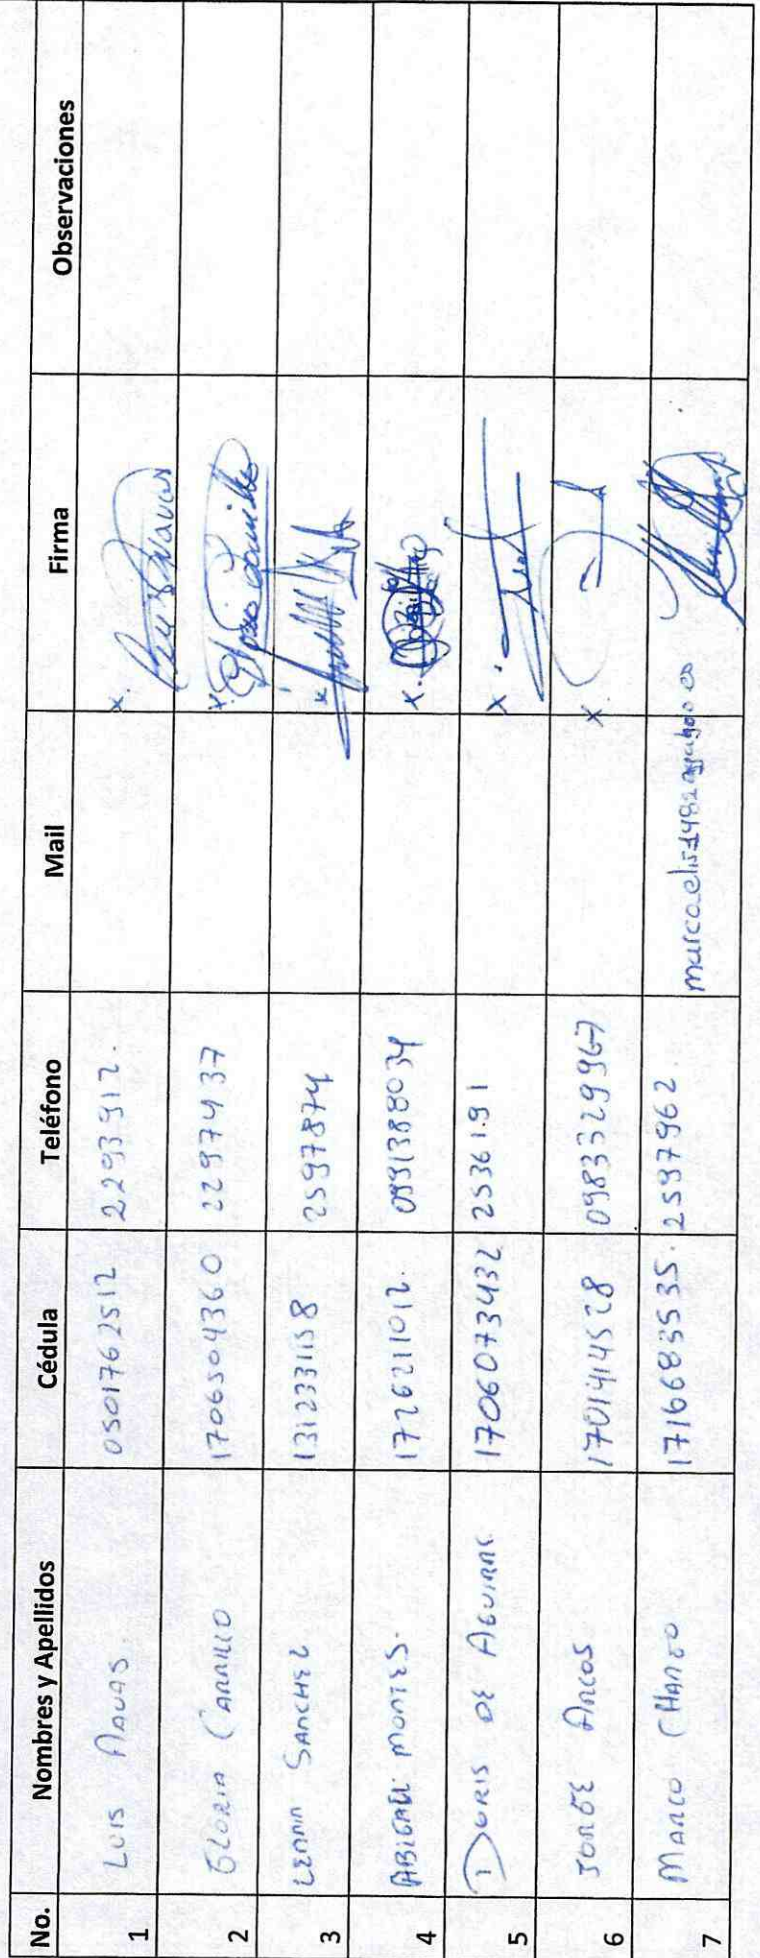 No. Nombres y Apellidos Cédula Teléfono Mail Firma Observaciones
1 LUIS NAVAS 0501762512 2293912. X.
2 GLORIA CARRILLO 1706504360 22979437 X.
3 LENNIN SANCHEZ 1312331158 2597874 X
4 ABIGAIL MONTES. 1726211012. 0991388034 X.
5 DORIS DE AGUIRRE 1706073432 2536191 X.
6 JORGE ARCOS 1701414528 0983329967 X.
7 MARCO CHANGO 1716683535. 2597962.